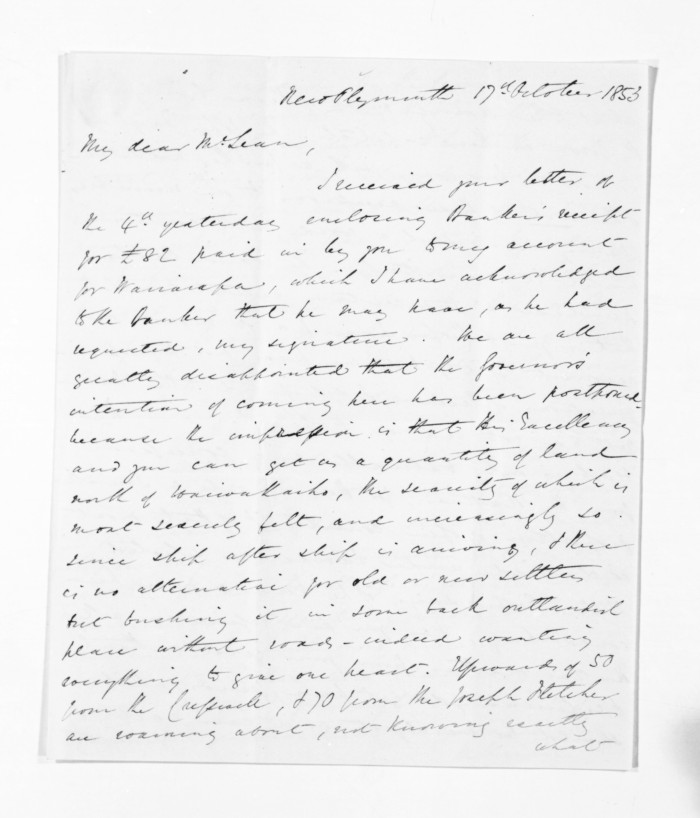 New Plymouth 17th October 1853
My dear McLean,
I received your letter of
the 4th yesterday enclosing Banker's receipt
for £82 paid in by you to my account
for Wairarapa, which I have acknowledged
to the Banker that he may have, as he had
requested, my signature. We are all
greatly disappointed that the Governor's
intention of coming here has been postponed
because the impression is that His Excellency
and you can get us a quantity of land
north of Waiwakaiho, the scarcity of which is
most severely felt, and increasingly so
since ship after ship is arriving, & there
is no alternative for old or new settlers
but bushing it in some back outlandish
place without roads - indeed wanting
everything to give one heart. Upwards of 50
from the Cresswell, & 70 from the Joseph Fletcher
are roaming about, not knowing exactly
what